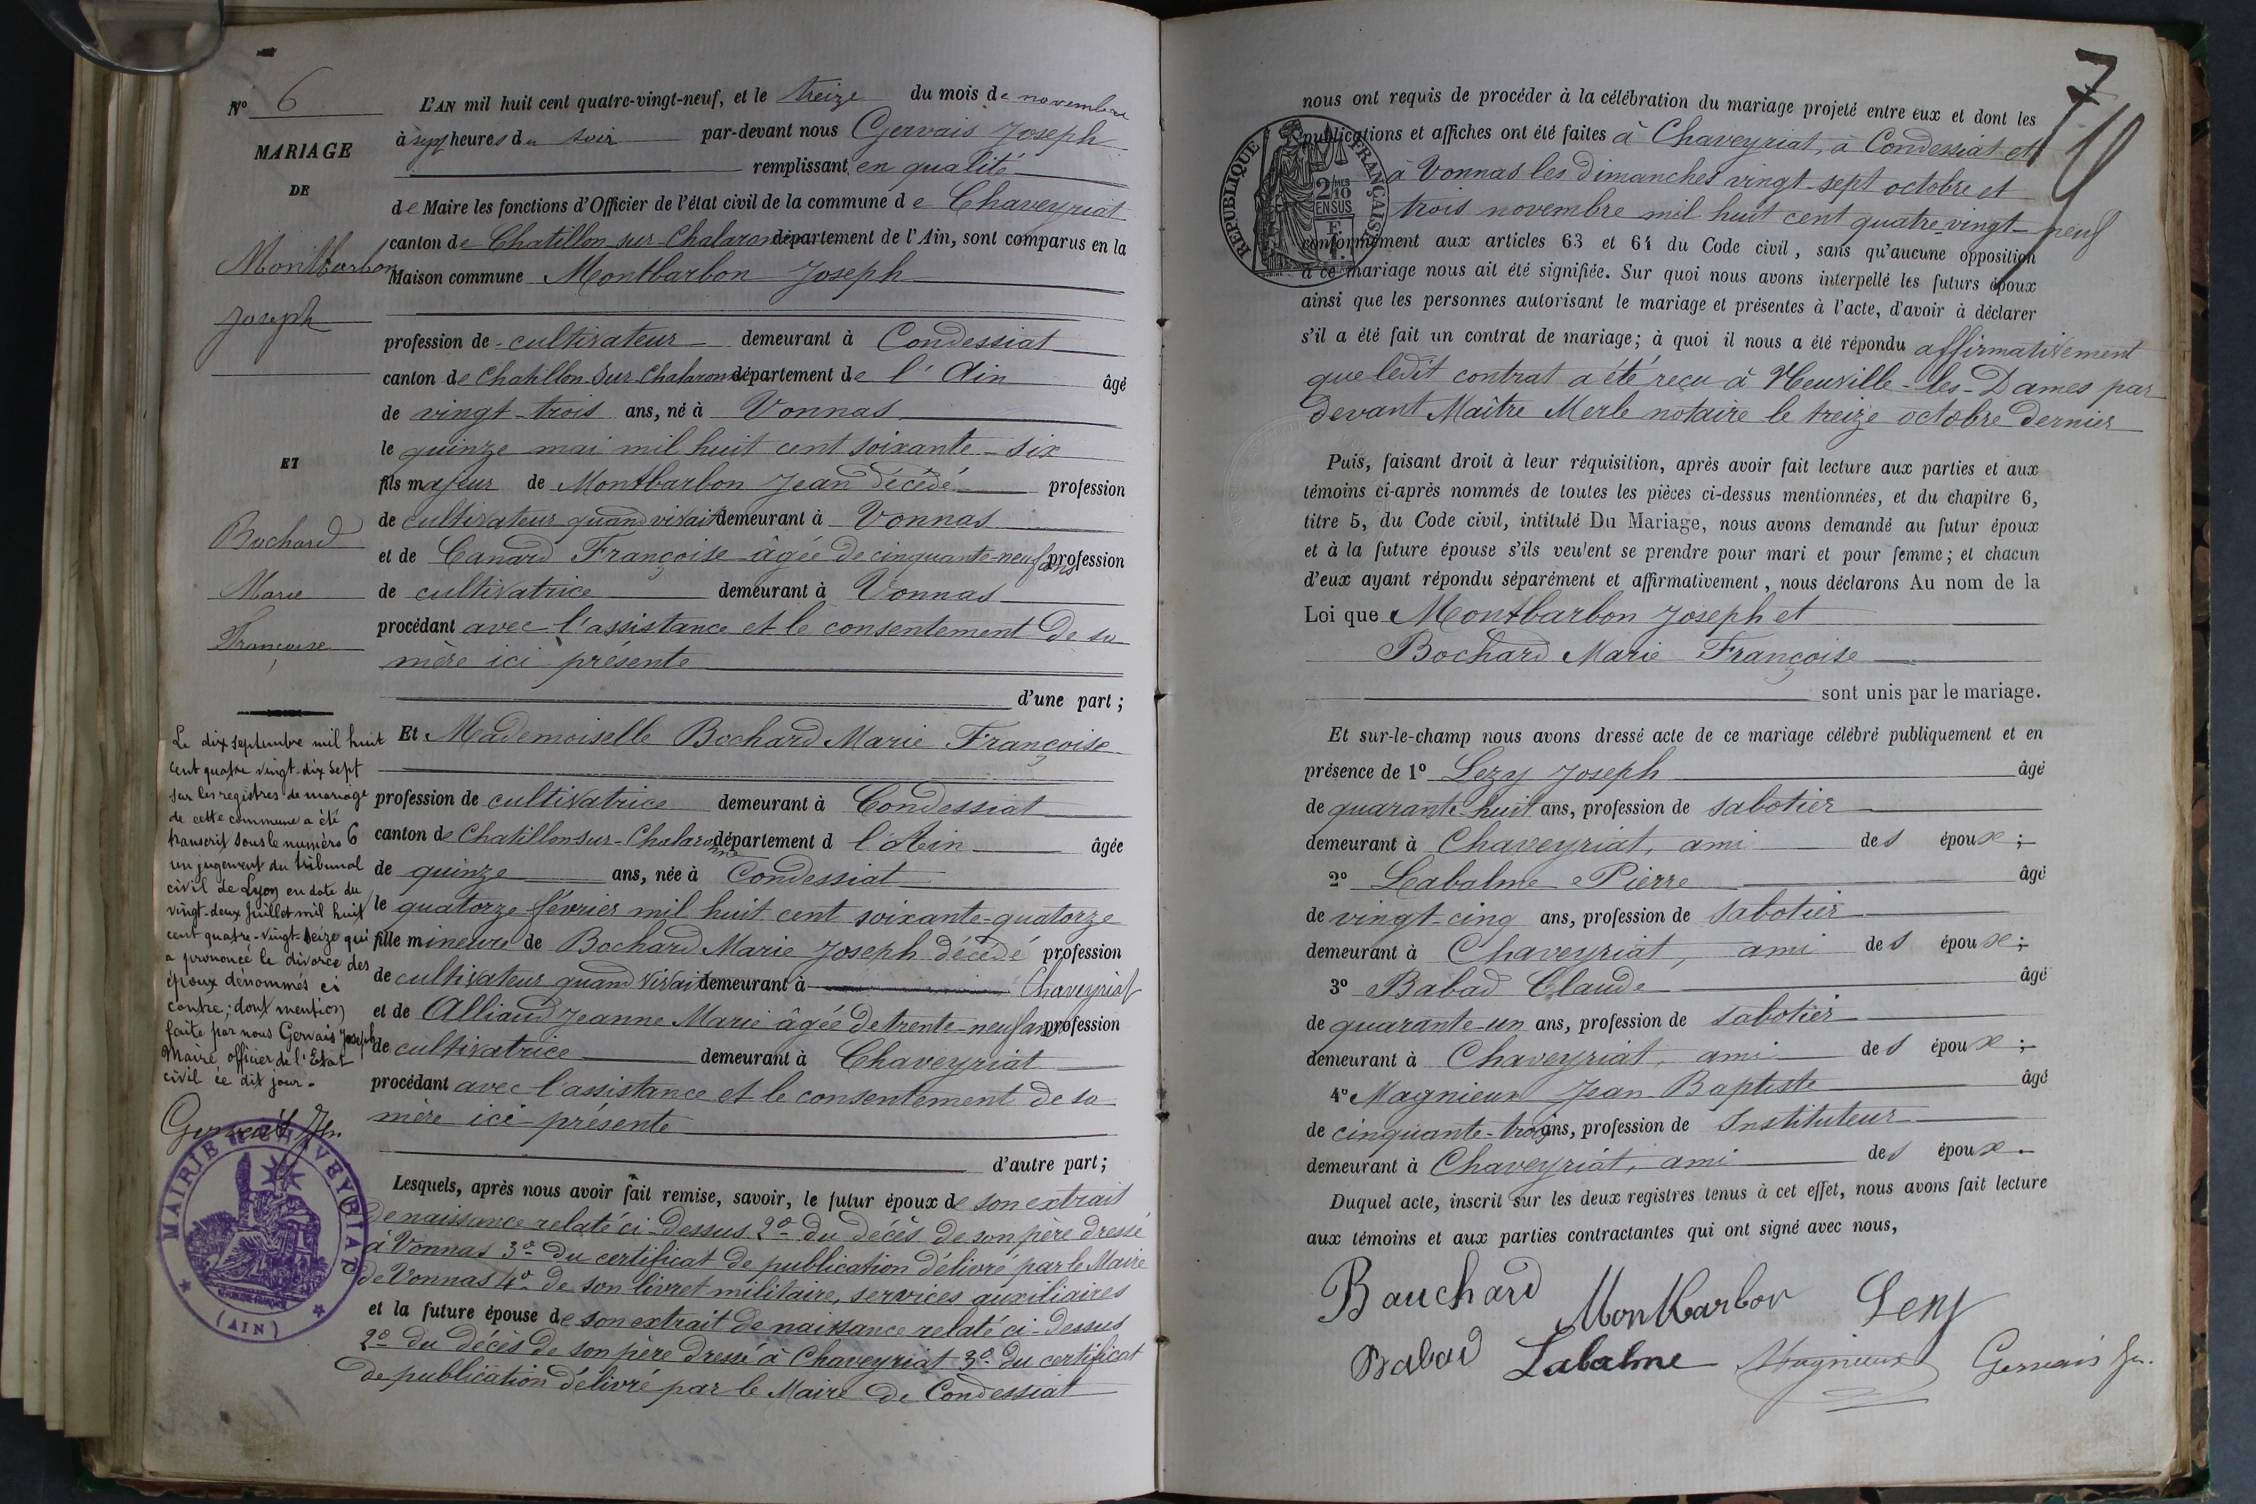 N° 6
MARIAGE
DE
Montbarbon
Joseph
ET
Bochard
Marie
Françoise
L'AN mil huit cent quatre-vingt-neuf, et le treize du mois de novembre
à sept heures du soir par-devant nous Gervais Joseph
remplissant en qualité
de Maire les fonctions d'Officier de l'état civil de la commune de Chaveyriat
canton de Chatillon sur Chalaronne département de l'Ain, sont comparus en la
Maison commune Montbarbon Joseph
profession de cultivateur demeurant à Condessiat
canton de Chatillon sur Chalaronne département de l'Ain âgé
de vingt-trois ans, né à Vonnas
le quinze mai mil huit cent soixante-six
fils majeur de Montbarbon Jean décédé profession
de cultivateur quand vivait demeurant à Vonnas
et de Canard Françoise âgée de cinquante-neuf ans profession
de cultivatrice demeurant à Vonnas
procédant avec l'assistance et le consentement de sa
mère ici présente
d'une part ;
Et Mademoiselle Bochard Marie Françoise
profession de cultivatrice demeurant à Condessiat
canton de Chatillon sur-Chalaronne département d l'Ain âgée
de quinze ans, née à Condessiat
le quatorze février mil huit cent soixante-quatorze
fille mineure de Bochard Marie Joseph décédé profession
de cultivateur quand vivait demeurant à Chaveyriat
et de Alliaud Jeanne Marie âgée de trente-neuf ans profession
de cultivatrice demeurant à Chaveyriat
procédant avec l'assistance et le consentement de sa
mère ici présente
d'autre part ;
Lesquels, après nous avoir fait remise, savoir, le futur époux de son extrait
de naissance relaté ci-dessus 2° du décès de son père dressé
à Vonnas 3° du certificat de publication délivré par le Maire
de Vonnas 4° de son livret militaire, services auxiliaires
et la future épouse de son extrait de naissance relaté ci-dessus
2° du décès de son père dressé à Chaveyriat 3° du certificat
de publication délivré par le Maire de Condessiat
Le dix septembre mil huit
cent quatre vingt-dix sept
sur les registres de mariage
de cette commune a été
transcrit sous le numéro 6
un jugement du tribunal
civil de Lyon en date du
vingt-deux Juillet mil huit
cent quatre-vingt-seize qui
a prononcé le divorce des
époux dénommés ci
contre ; dont mention
faite par nous Gervais Joseph
Maire, officier de l'Etat
civil ce dit jour.
Gervais Jh.
MAIRIE DE CHAVEYRIAT
(AIN)
7
nous ont requis de procéder à la célébration du mariage projeté entre eux et dont les
publications et affiches ont été faites à Chaveyriat, à Condessiat et
à Vonnas les dimanches vingt-sept octobre et
trois novembre mil huit cent quatre-vingt-neuf
conformément aux articles 63 et 64 du Code civil, sans qu'aucune opposition
à ce mariage nous ait été signifiée. Sur quoi nous avons interpellé les futurs époux
ainsi que les personnes autorisant le mariage et présentes à l'acte, d'avoir à déclarer
s'il a été fait un contrat de mariage ; à quoi il nous a été répondu affirmativement
que ledit contrat a été reçu à Neuville-les-Dames par
devant Maître Merle notaire le treize octobre dernier
RÉPUBLIQUE FRANÇAISE
2/10
EN SUS
Puis, faisant droit à leur réquisition, après avoir fait lecture aux parties et aux
témoins ci-après nommés de toutes les pièces ci-dessus mentionnées, et du chapitre 6,
titre 5, du Code civil, intitulé Du Mariage, nous avons demandé au futur époux
et à la future épouse s'ils veulent se prendre pour mari et pour femme ; et chacun
d'eux ayant répondu séparément et affirmativement, nous déclarons Au nom de la
Loi que Montbarbon Joseph et
Bochard Marie Françoise
sont unis par le mariage.
Et sur-le-champ nous avons dressé acte de ce mariage célébré publiquement et en
présence de 1° Lezy Joseph âgé
de quarante-huit ans, profession de sabotier
demeurant à Chaveyriat, ami des époux ;
2° Labalme Pierre âgé
de vingt-cinq ans, profession de sabotier
demeurant à Chaveyriat, ami des époux ;
3° Babad Claude âgé
de quarante-un ans, profession de sabotier
demeurant à Chaveyriat, ami des époux ;
4° Magnieux Jean-Baptiste âgé
de cinquante-trois ans, profession de Instituteur
demeurant à Chaveyriat, ami des époux.
Duquel acte, inscrit sur les deux registres tenus à cet effet, nous avons fait lecture
aux témoins et aux parties contractantes qui ont signé avec nous,
Bauchard Montbarbon Lezy
Babad Labalme Magnieux Gervais Jh.